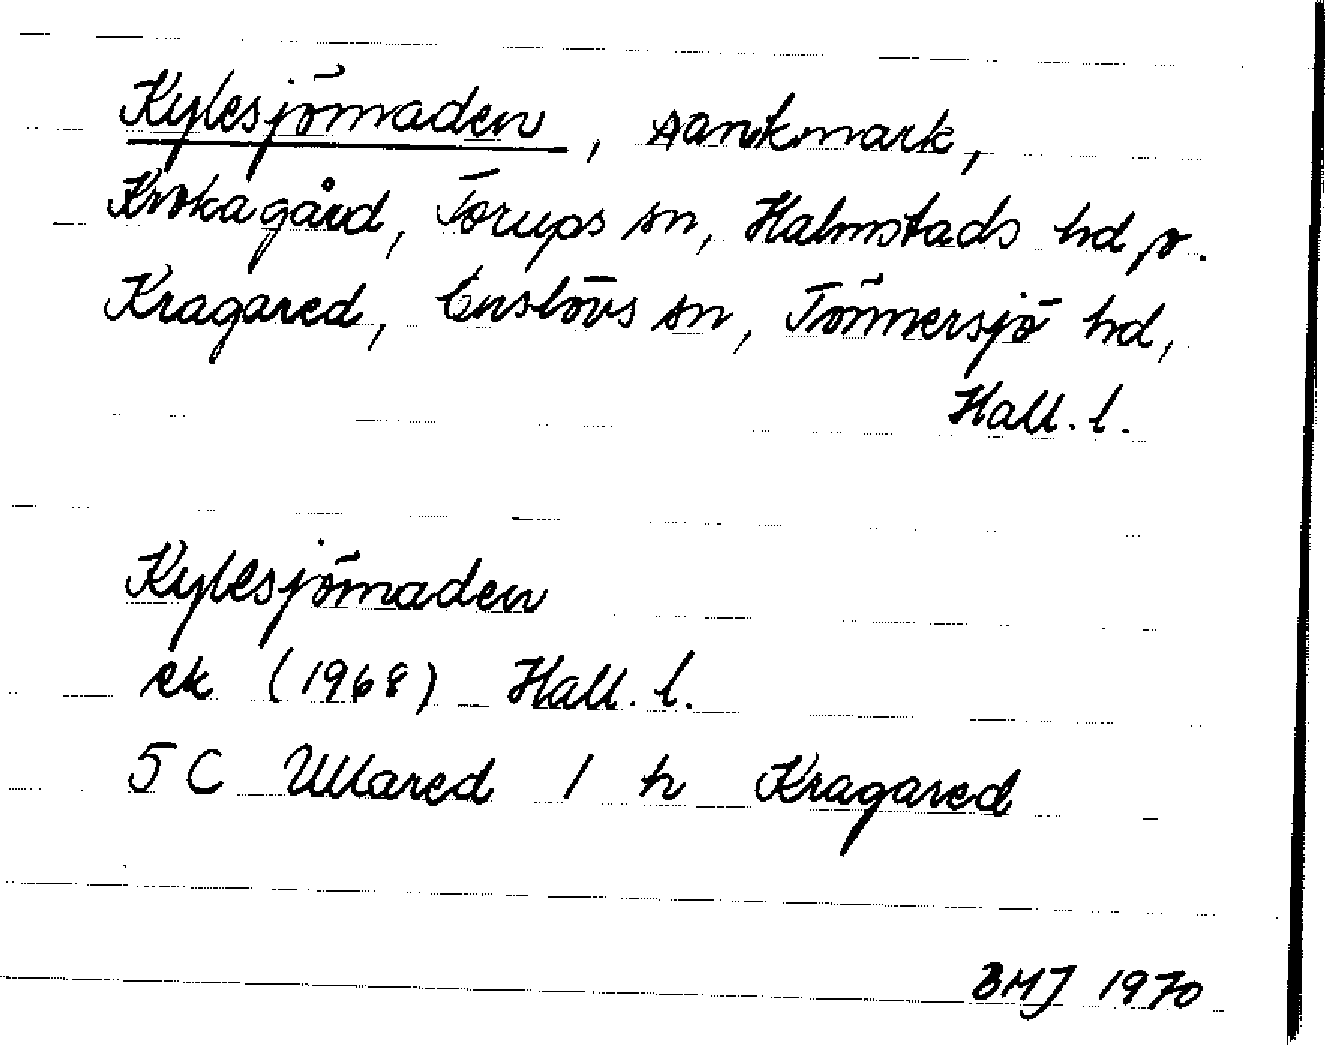 Kylesjömaden, sankmark,
Krokagård, Torups sn, Halmstads hd o.
Kragared, Enslövs sn, Tönnersjö hd,
Hall. l.
Kylesjömaden
ek (1968) Hall. l.
5 C Ullared 1 h Kragared
BMJ 1970